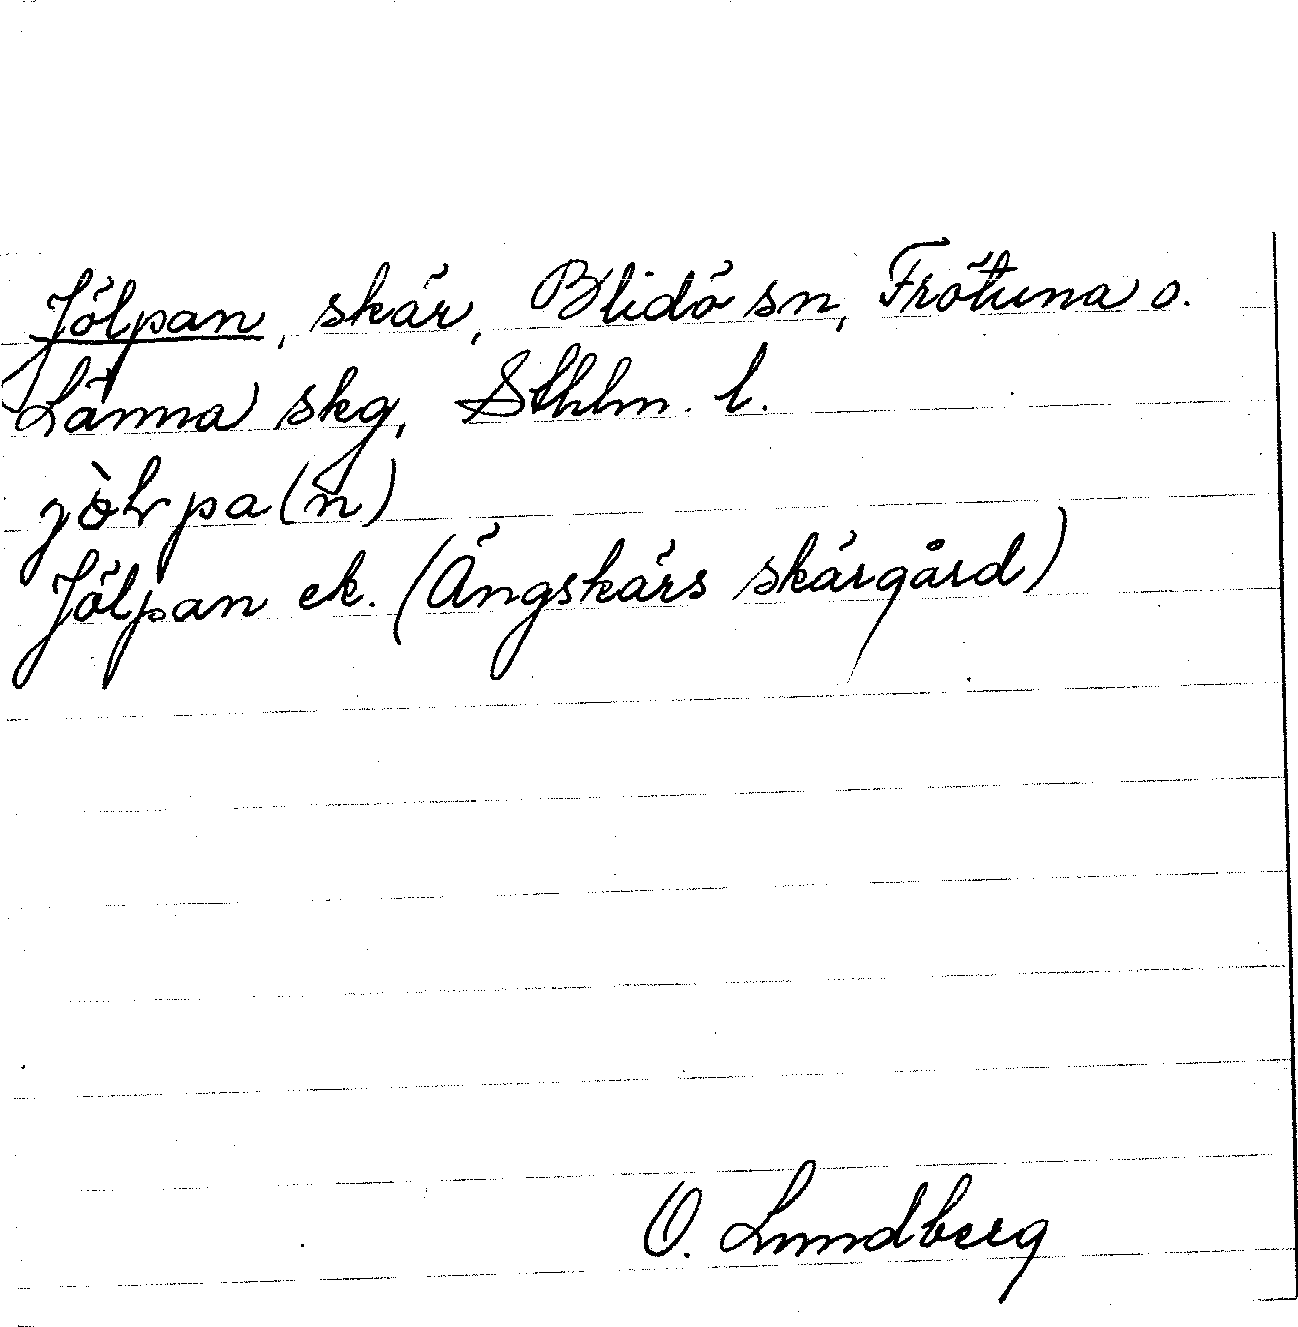 Jölpan, skär, Blidö sn, Frötuna o.
Länna skg, Sthlm. l.
Jölpan ek. (Ängskärs skärgård)
O. Lundberg